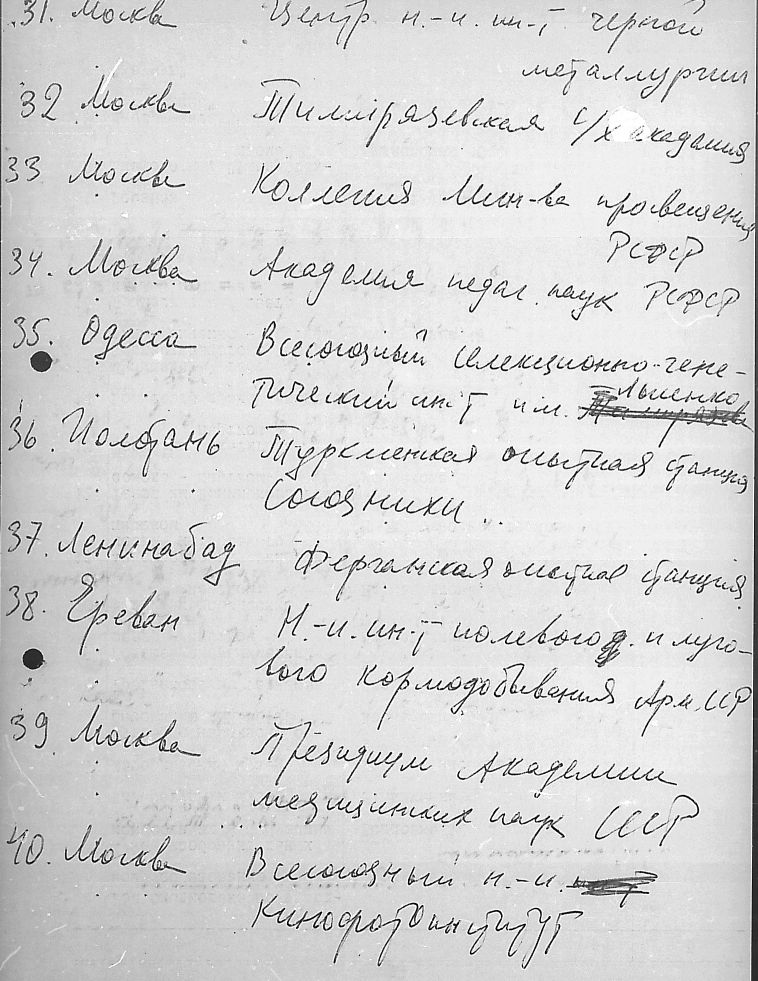 31. Москва Центр. н.-и. ин-т черной
металлургии
32 Москва Тимирязевская с/х академия
33 Москва Коллегия Мин-ва просвещения
РСФСР
34. Москва Академия педаг. наук РСФСР
35. Одесса Всесоюзный селекционно-гене-
тический ин-т им. Лысенко
36. Иолотань Туркменская опытная станция
Союзнихи
37. Ленинабад Ферганская опытная станция
38. Ереван Н.-и. ин-т полевого и луго-
вого кормодобывания Арм. ССР
39 Москва Президиум Академии
медицинских наук СССР
40. Москва Всесоюзный н.-и.
Кинофотоинститут